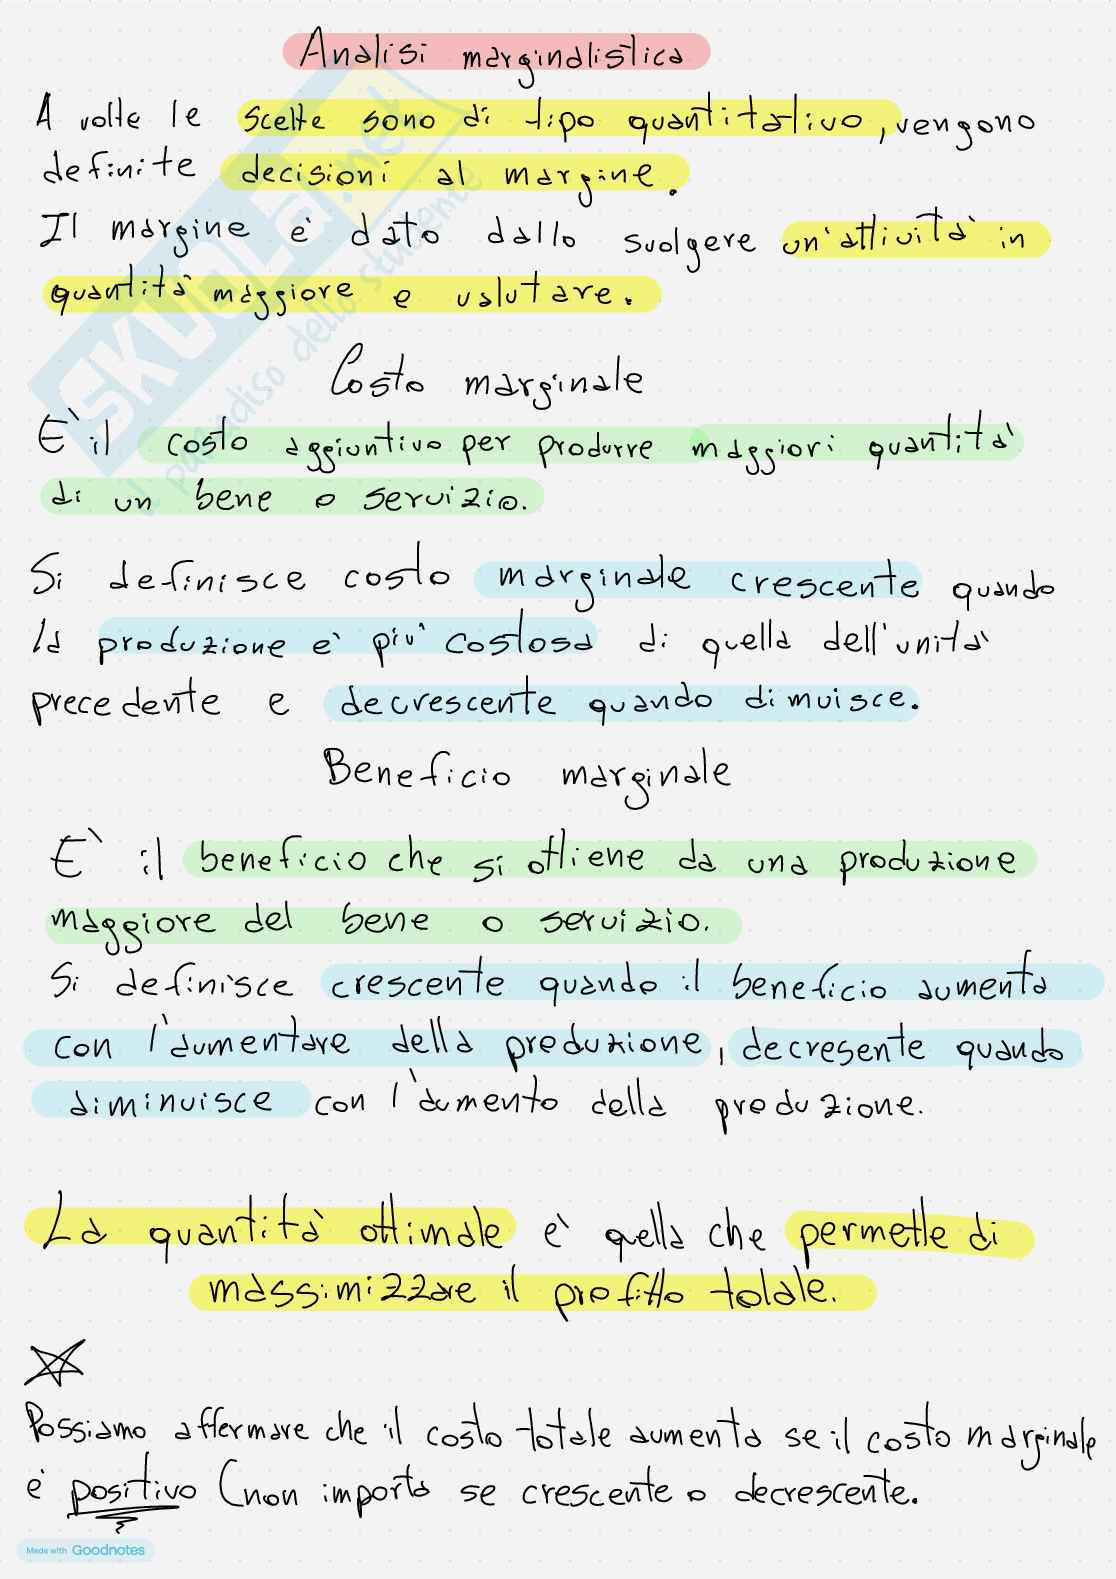 Analisi marginalistica
A volte le scelte sono di tipo quantitativo, vengono
definite decisioni al margine.
Il margine è dato dallo svolgere un'attività in
quantità maggiore e valutare.
Costo marginale
E' il costo aggiuntivo per produrre maggiori quantità
di un bene o servizio.
Si definisce costo marginale crescente quando
la produzione è più costosa di quella dell'unità
precedente e decrescente quando dimuisce.
Beneficio marginale
E' il beneficio che si ottiene da una produzione
maggiore del bene o servizio.
Si definisce crescente quando il beneficio aumenta
con l'aumentare della produzione, decresente quando
diminuisce con l'aumento della produzione.
La quantità ottimale è quella che permette di
massimizzare il profitto totale.
Possiamo affermare che il costo totale aumenta se il costo marginale
è positivo (non importa se crescente o decrescente.
Made with Goodnotes
SKUOLA.net
il paradiso dello studente